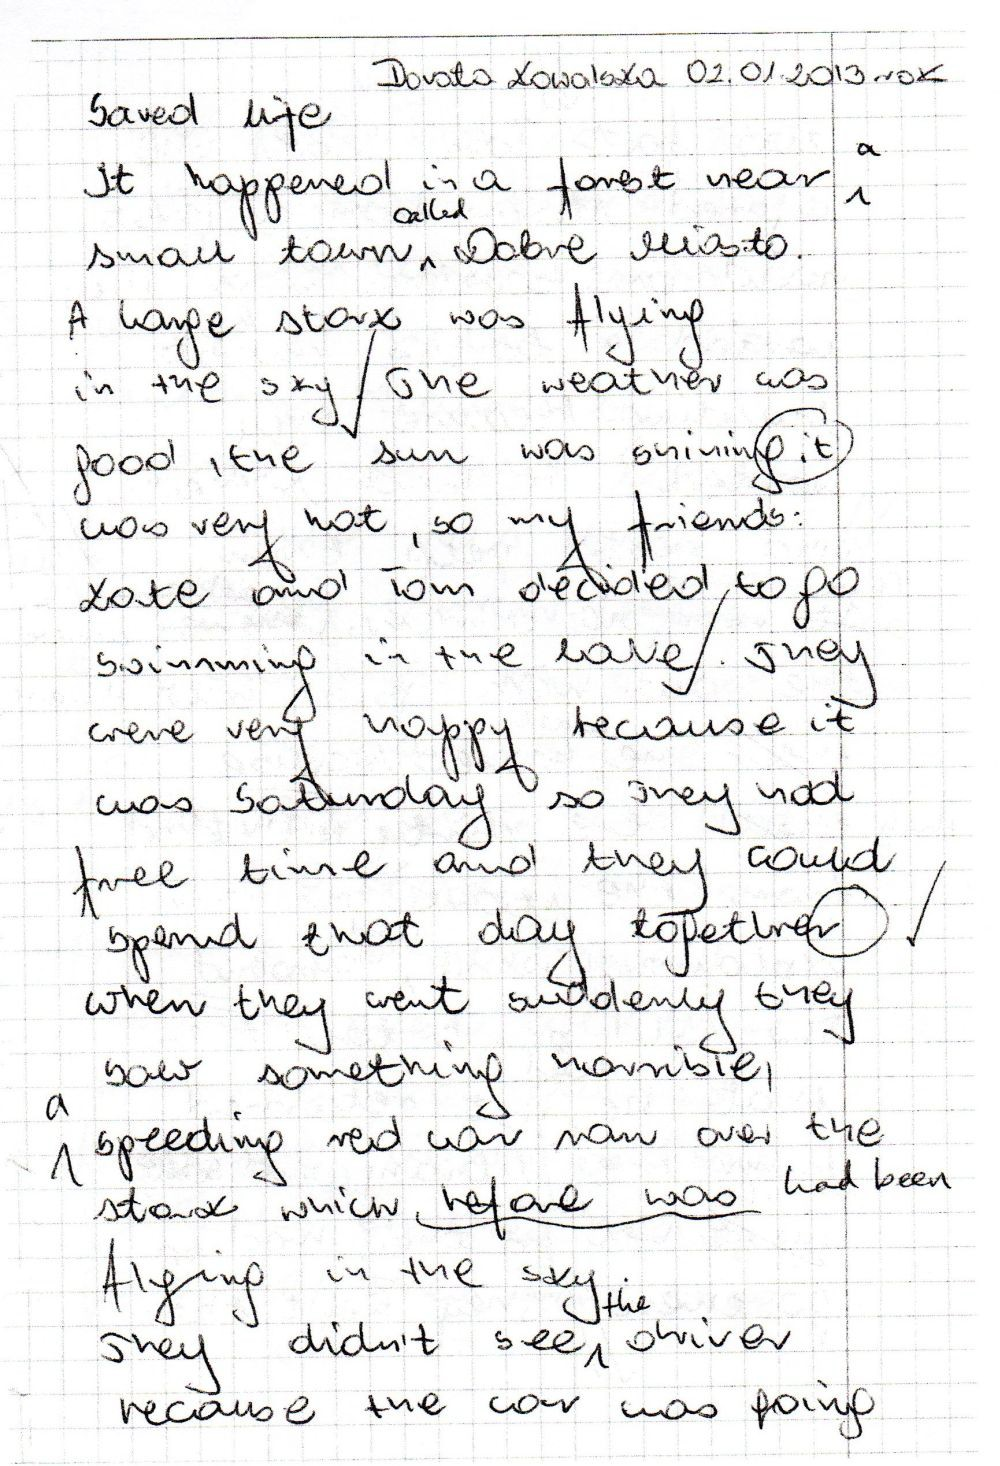 Dorota Kowalska 02.01.2013 rok
Saved life
It happened in a forest near a
small town called Dobre Miasto.
A large stork was flying
in the sky. The weather was
good, the sun was shining it
was very hot, so my friends:
Kate and Tom decided to go
swimming in the lake. They
were very happy because it
was Saturday so they had
free time and they could
spend that day together
when they went suddenly they
saw something horrible,
a speeding red car ran over the
stork which before was had been
flying in the sky.
They didn't see the driver
because the car was going